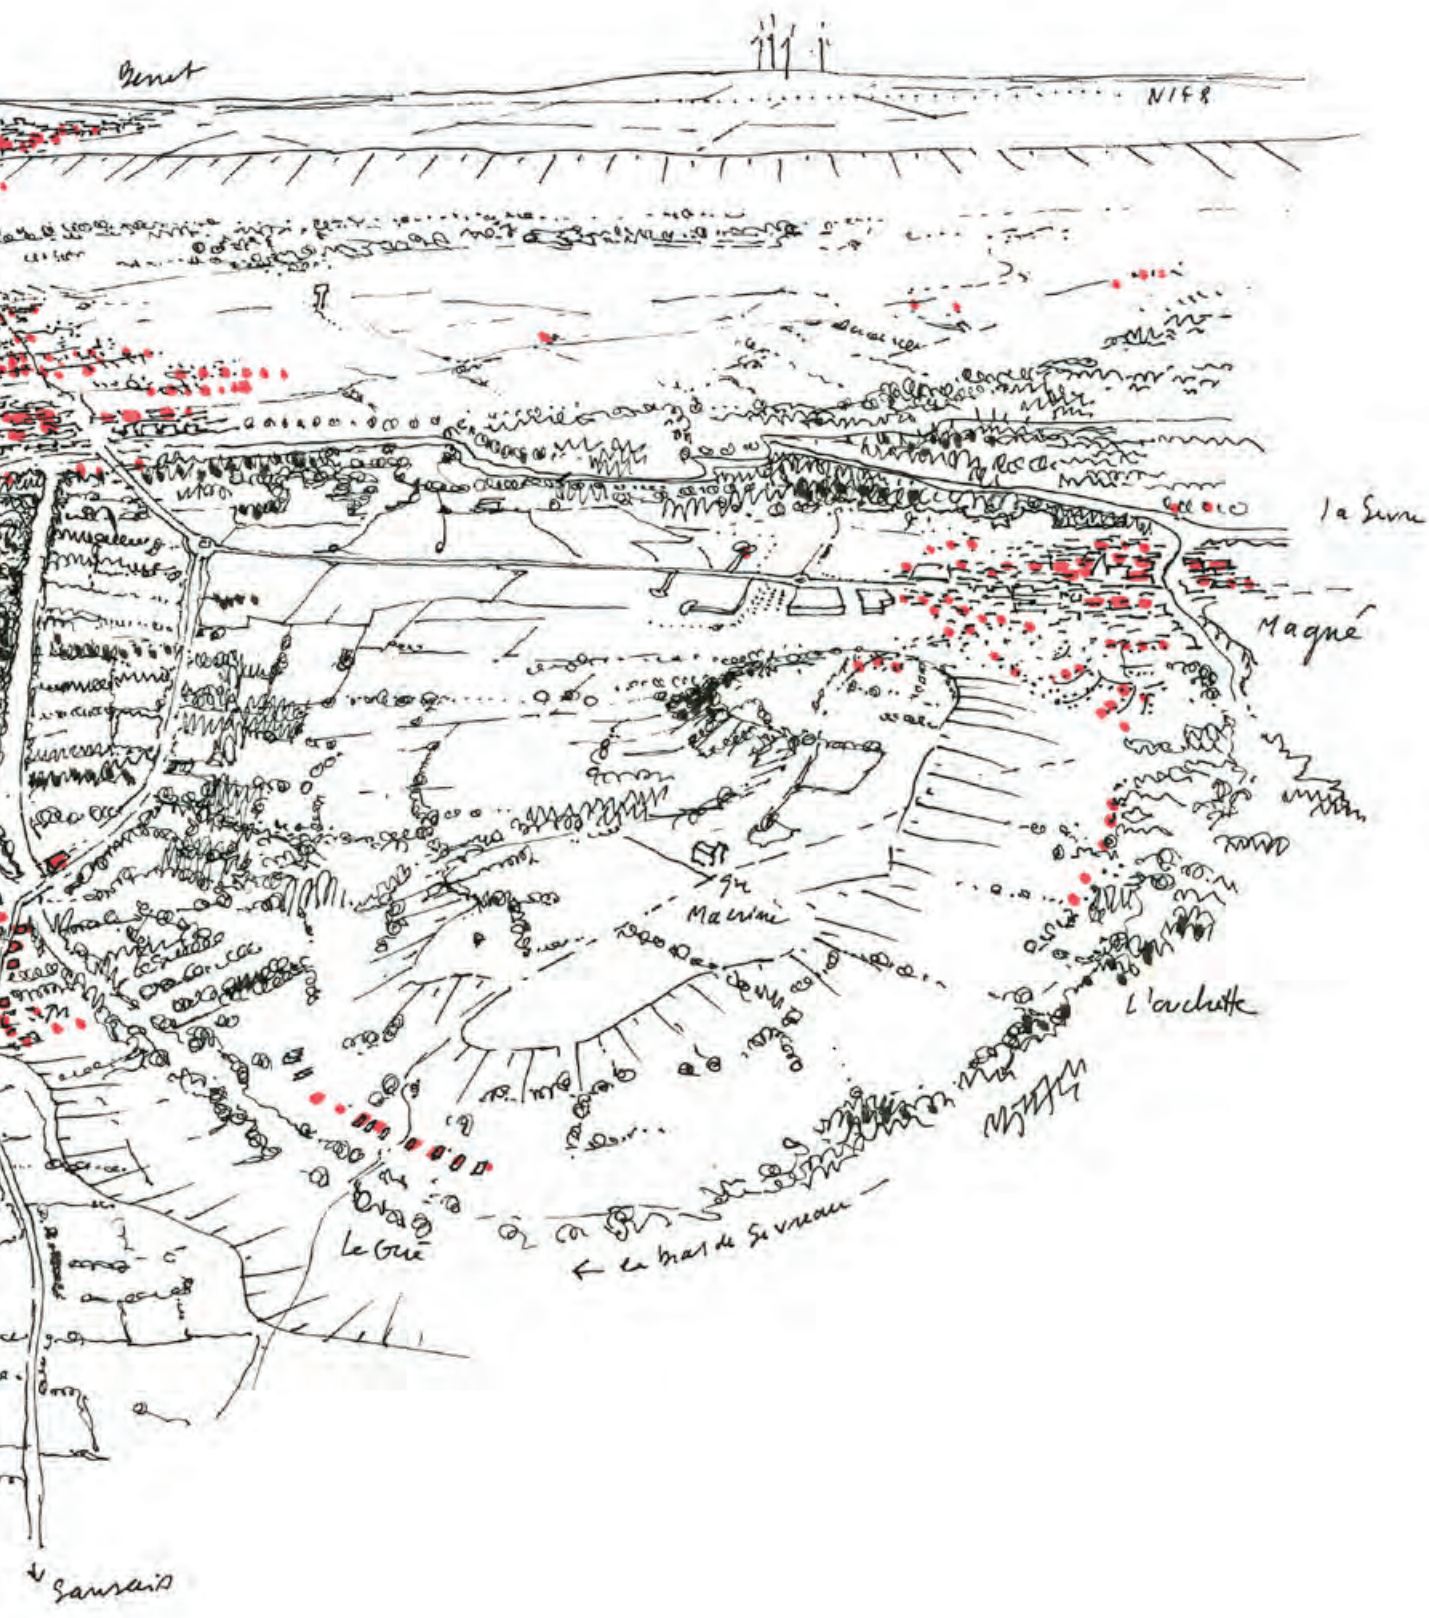 Benet
N148
la Sèvre
Magné
gde
Macrine
L'ouchette
Le Gué
← le bras de Sevreau
Sansais